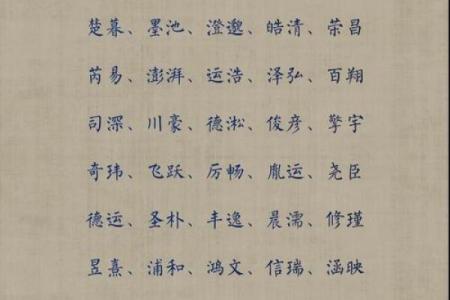 楚暮、墨池、澄邈、皓清、荣昌
芮易、澎湃、运浩、泽弘、百翔
司深、川豪、德淞、俊彦、擎宇
奇玮、飞跃、厉畅、胤运、尧臣
德运、圣朴、丰逸、晨濡、修瑾
昱熹、浦和、鸿文、信瑞、涵映